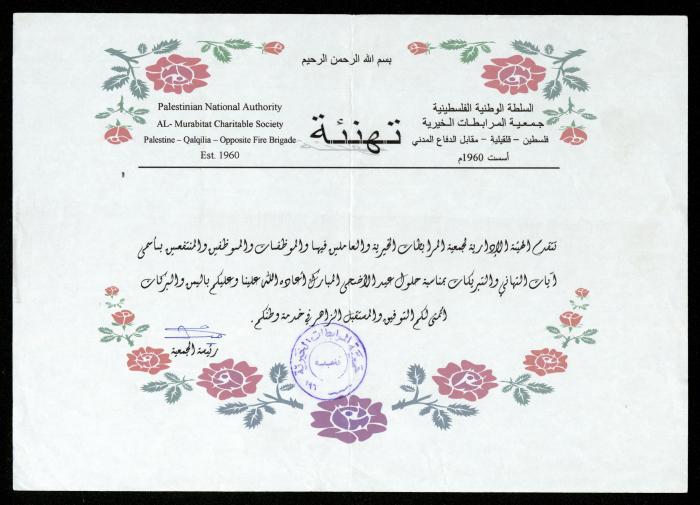 بسم الله الرحمن الرحيم
Palestinian National Authority
AL- Murabitat Charitable Society
Palestine – Qalqilia – Opposite Fire Brigade
Est. 1960
تهنئة
السلطة الوطنية الفلسطينية
جمعية المرابطات الخيرية
فلسطين – قلقيلية – مقابل الدفاع المدني
أسست 1960م
تتقدم الهيئة الإدارية لجمعية المرابطات الخيرية والعاملين فيها والموظفات والموظفين والمنتفعين بأسمى
آيات التهاني والتبريكات بمناسبة حلول عيد الأضحى المبارك أعاده الله علينا وعليكم باليمن والبركات
أتمنى لكم التوفيق والمستقبل الزاهر في خدمة وطنكم.
رئيسة الجمعية
جمعية المرابطات الخيرية
قلقيلية